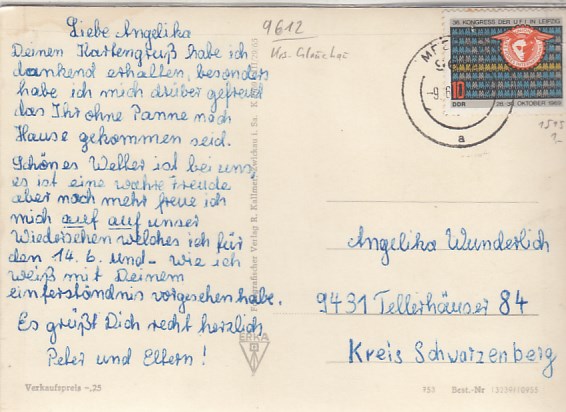 Liebe Angelika
Deinen Kartengruß habe ich
dankend erhalten, besonders
habe ich mich drüber gefreut
das Ihr ohne Panne nach
Hause gekommen seid.
Schönes Wetter ist bei uns
es ist eine wahre Freude
aber noch mehr freue ich
mich auf auf unser
Wiedersehen welches ich für
den 14.6. und - wie ich
weiß mit Deinem
einferständnis vorgesehen habe.
Es grüßt Dich recht herzlich
Peter und Eltern!
Verkaufspreis -,25
9612
Mee
Fotografischer Verlag R. Kallmer, Zwickau i. Sa.
36. KONGRESS DER UFI IN LEIPZIG
10
DDR
28.-30. OKTOBER 1969
a
1515
Angelika Wunderlich
9431 Tellerhäuser 84
Kreis Schwarzenberg
Best.-Nr